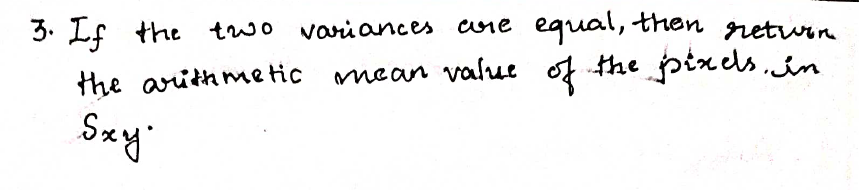 3. If the two variances are equal, then return
the arithmetic mean value of the pixels in
Sxy.